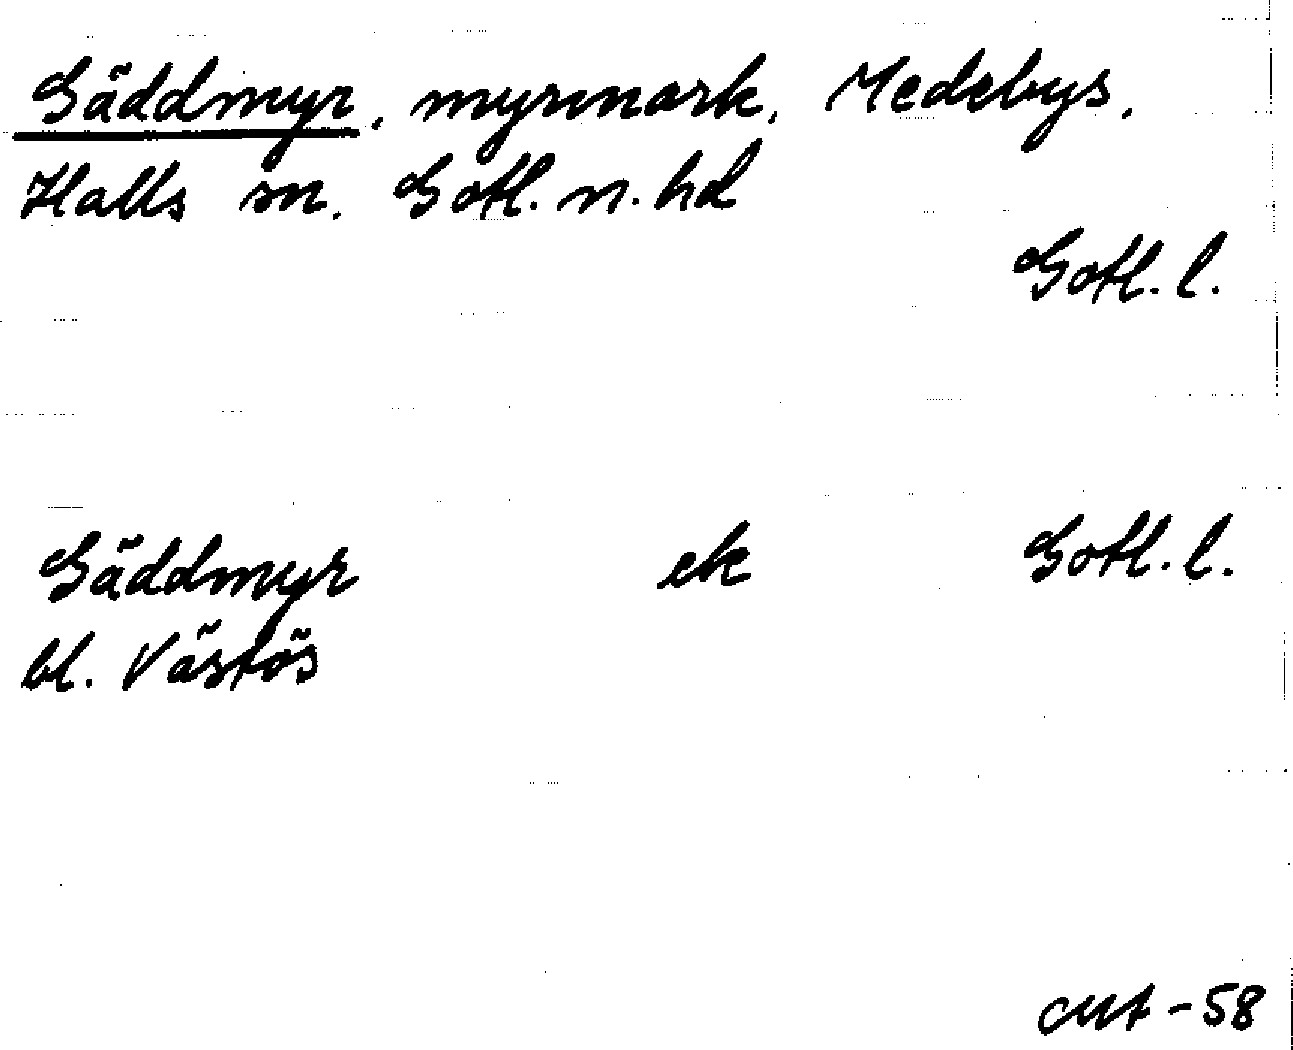 Gäddmyr, myrmark, Medebys,
Halls sn. Gotl. n. hd
Gotl. l.
Gäddmyr ek Gotl. l.
bl. Västös
-58